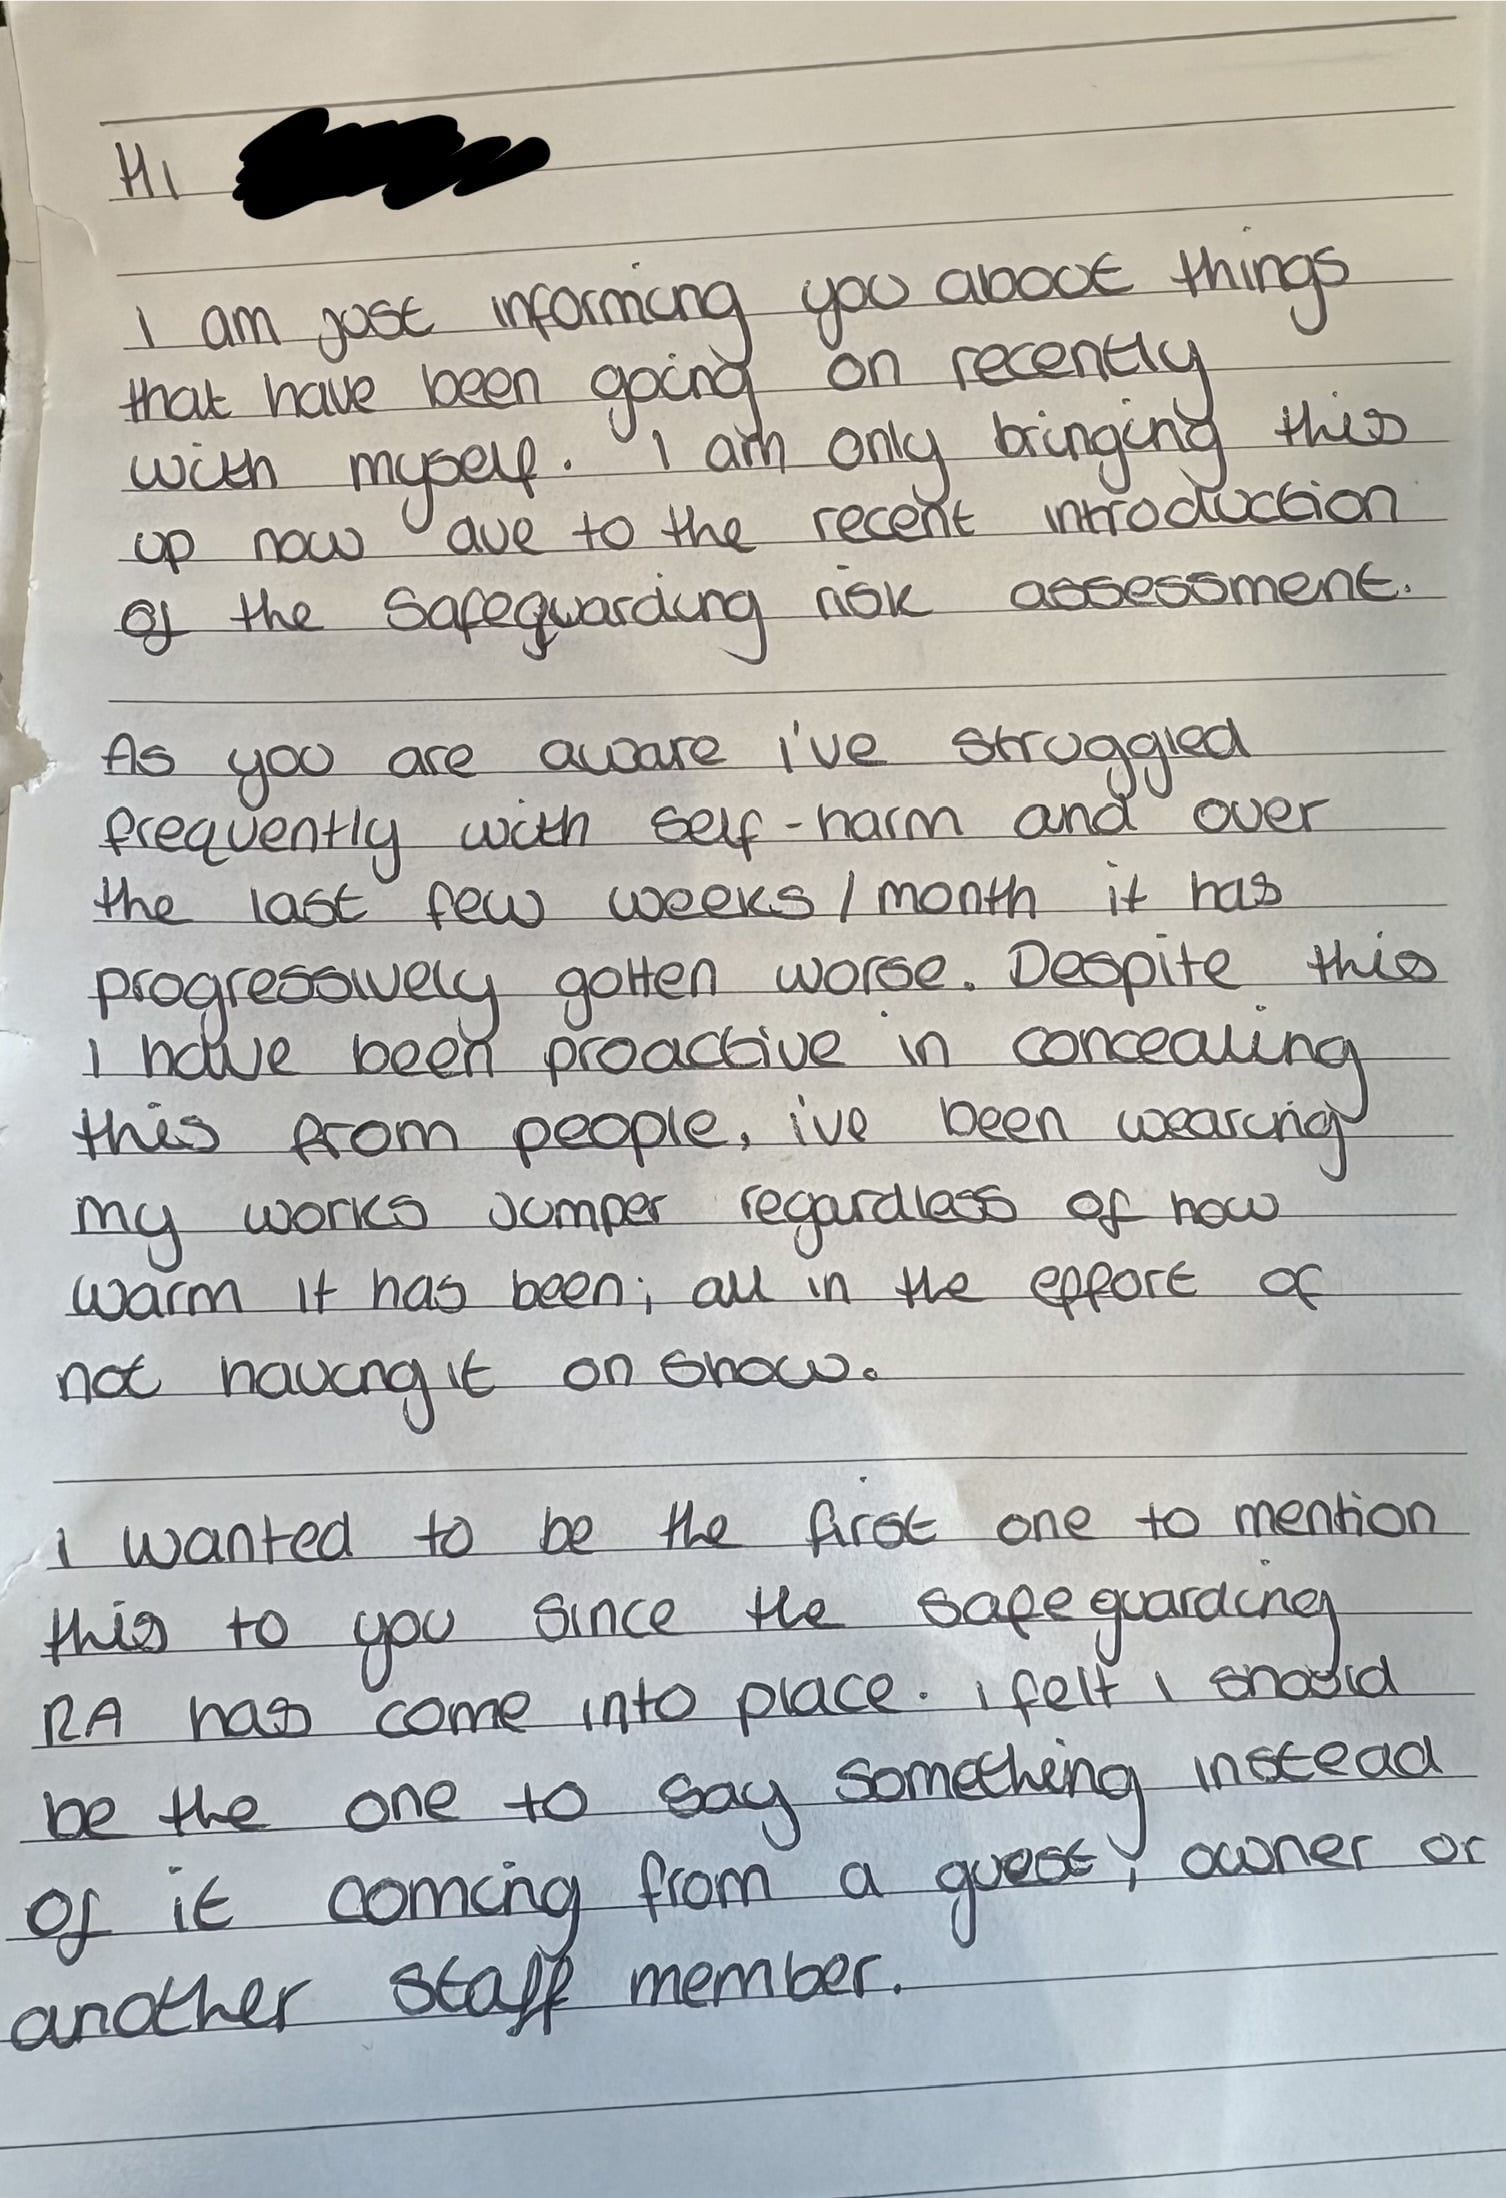 Hi
I am just informing you about things
that have been going on recently
with myself. I am only bringing this
up now due to the recent introduction
of the safeguarding risk assessment.
As you are aware i've struggled
frequently with self-harm and over
the last few weeks / month it has
progressively gotten worse. Despite this
I have been proactive in concealing
this from people, i've been wearing
my works jumper regardless of how
warm it has been; all in the effort of
not having it on show.
I wanted to be the first one to mention
this to you since the safeguarding
RA has come into place. I felt I should
be the one to say something instead
of it coming from a guest, owner or
another staff member.